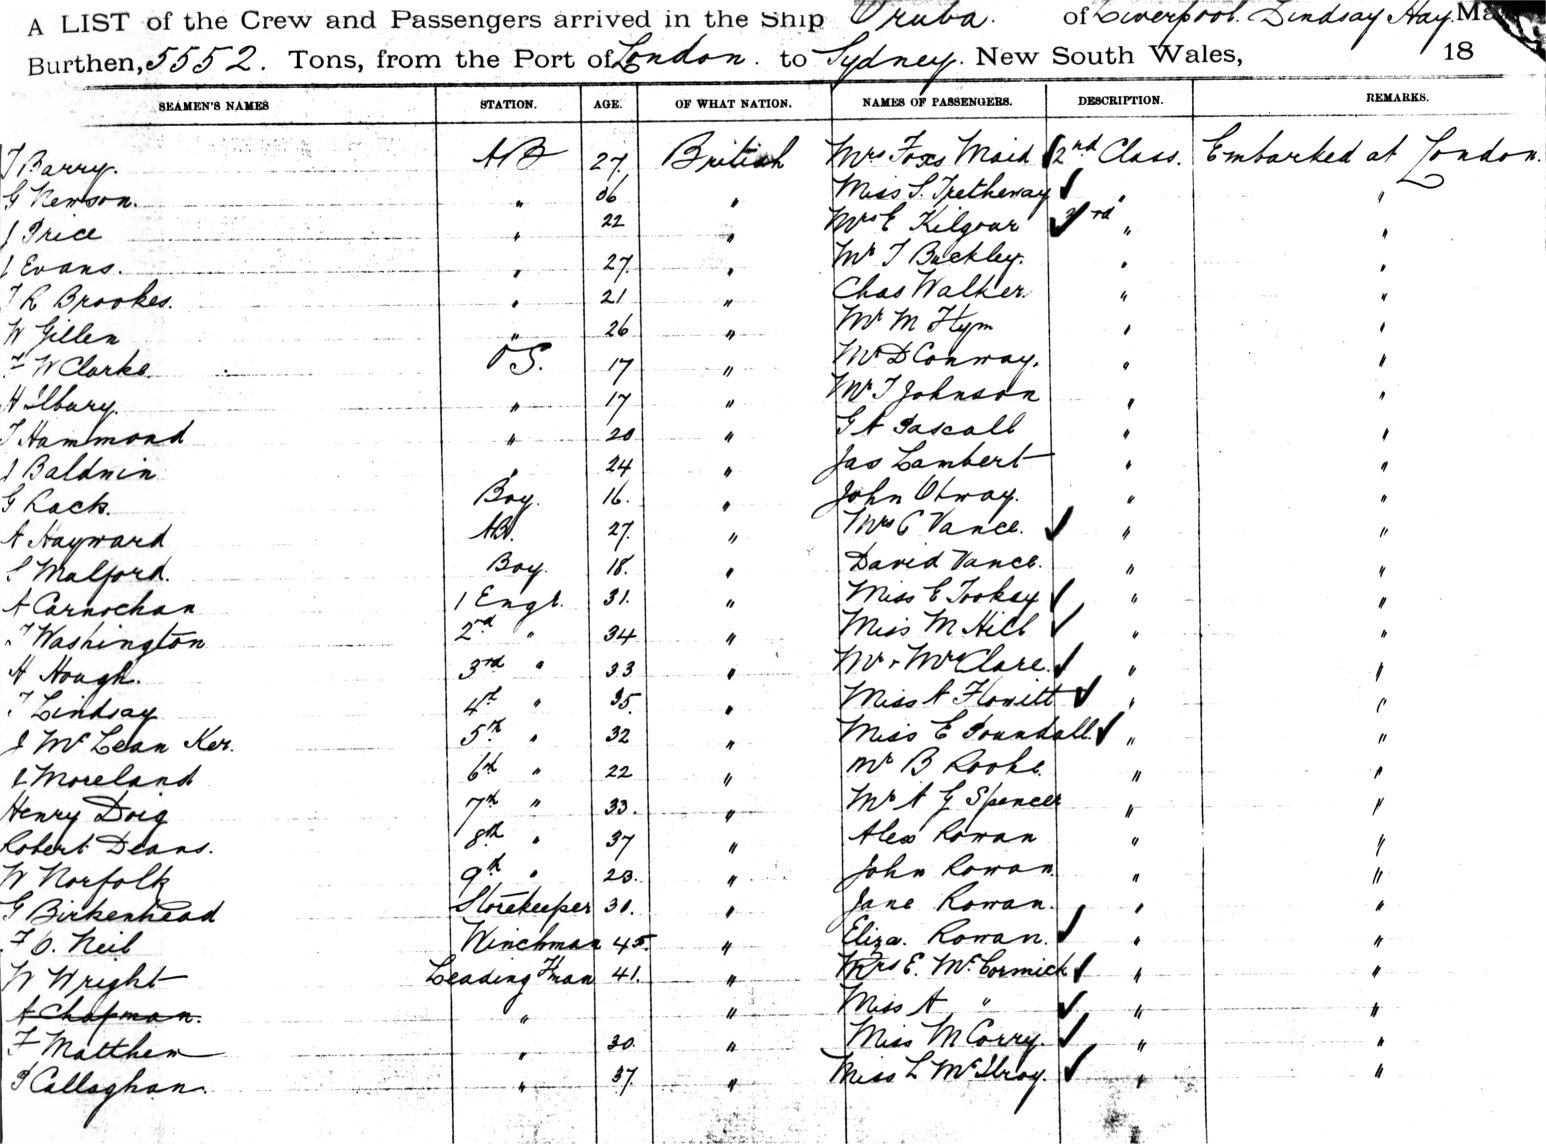 A LIST of the Crew and Passengers arrived in the Ship Oruba. of Liverpool. Lindsay Hay. Ma
Burthen, 5552. Tons, from the Port of London. to Sydney. New South Wales, 18
SEAMEN'S NAMES STATION. AGE. OF WHAT NATION. NAMES OF PASSENGERS. DESCRIPTION. REMARKS.
T Barry. AB 27. British Mrs Foxs Maid ✓ 2nd Class. Embarked at London.
G Newson. " 36 " Miss S. Tretheway ✓ " "
J Price " 22 " Mrs E Kilgour ✓ 3rd " "
J Evans. " 27. " Mr T Buckley. " "
T R Brookes. " 21 " Chas Walker. " "
W Gillen " 26 " Mr M Flym " "
F W Clarke. OS. 17 " Mr D Conway. " "
H Ilbury. " 17 " Mr T Johnson " "
T Hammond " 20 " G A Pascall " "
J Baldwin " 24 " Jas Lambert " "
G Rack. Boy. 16. " John Otway. " "
A Hayward AB. 27. " Mrs C Vance. ✓ " "
S Malford. Boy. 18. " David Vance. " "
A Carnochan 1 Engr. 31. " Miss E Tookey ✓ " "
T Washington 2nd " 34 " Miss M Hill ✓ " "
H Hough. 3rd " 33 " Mr & Mrs Clare. ✓ " "
T Lindsay 4th " 35. " Miss A Flowitt ✓ " "
J McLean Ker. 5th " 32 " Miss E Poundall. ✓ " "
Moreland 6th " 22 " Mr B Rooke. " "
Henry Doig 7th " 33. " Mr A G Spencer " "
Robert Deans. 8th " 37 " Alex Rowan " "
W Norfolk 9th " 23. " John Rowan " "
G Birkenhead Storekeeper 30. " Jane Rowan. " "
F O. Neil Winchman 45. " Eliza. Rowan. ✓ " "
W Wright Leading Fman 41. " Mrs E. McCormick ✓ " "
A Chapman. " " Miss A " ✓ " "
F Matthew " 30. " Miss M Corry. ✓ " "
P Callaghan. " 37. " Miss L McIlroy. ✓ " "